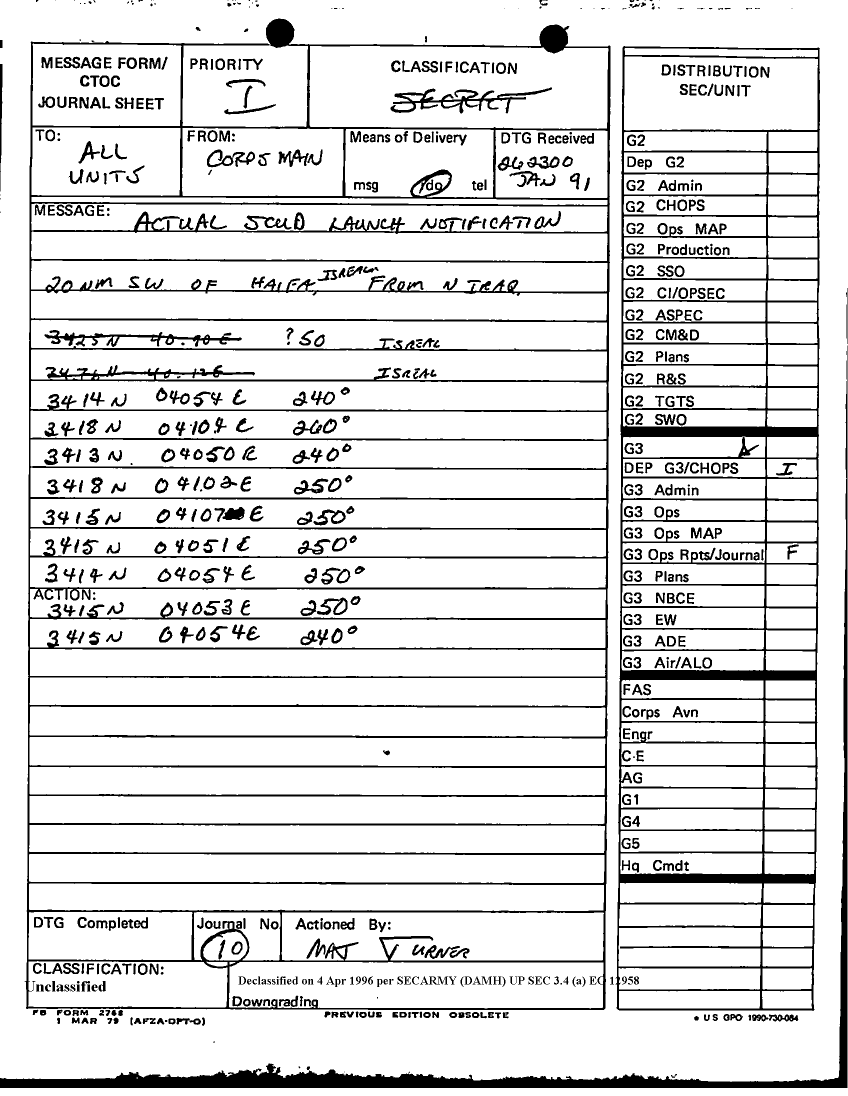 MESSAGE FORM/
CTOC
JOURNAL SHEET
PRIORITY
I
CLASSIFICATION
SECRET
TO:
ALL
UNITS
FROM:
CORPS MAIN
Means of Delivery
msg rdo tel
DTG Received
262300
JAN 91
MESSAGE:
ACTUAL SCUD LAUNCH NOTIFICATION
20 NM SW OF HAIFA, ISREAL FROM N IRAQ
3425N 40.90E ?50 ISREAL
ISREAL
3414N 04054E 240°
3418N 04104E 260°
3413N 04050E 240°
3418N 04102E 250°
3415N 04107 E 250°
3415N 04051E 250°
3414N 04054E 250°
ACTION:
3415N 04053E 250°
3415N 04054E 240°
DTG Completed
Journal No
10
Actioned By:
MAJ TURNER
CLASSIFICATION:
Unclassified
Declassified on 4 Apr 1996 per SECARMY (DAMH) UP SEC 3.4 (a) EO 12958
Downgrading
FB FORM 2768
1 MAR 79 (AFZA-DPT-O)
PREVIOUS EDITION OBSOLETE
DISTRIBUTION
SEC/UNIT
G2
Dep G2
G2 Admin
G2 CHOPS
G2 Ops MAP
G2 Production
G2 SSO
G2 CI/OPSEC
G2 ASPEC
G2 CM&D
G2 Plans
G2 R&S
G2 TGTS
G2 SWO
G3
DEP G3/CHOPS I
G3 Admin
G3 Ops
G3 Ops MAP
G3 Ops Rpts/Journal F
G3 Plans
G3 NBCE
G3 EW
G3 ADE
G3 Air/ALO
FAS
Corps Avn
Engr
C-E
AG
G1
G4
G5
Hq Cmdt
• US GPO 1990-730-084